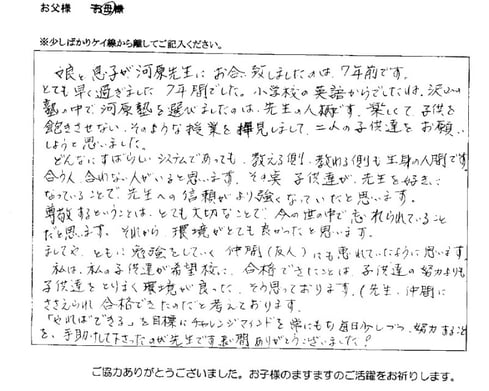 お父様　お母様
※少しばかりケイ線から離してご記入ください。
娘と息子が河原先生にお会い致しましたのは、7年前です。
とても早く過ぎました7年間でした。小学校の英語からでしたね。沢山の
塾の中で、河原塾を選びましたのは、先生の人柄です。楽しくて、子供を
飽きさせない、そのような授業を拝見しまして、二人の子供達をお願い
しようと思いました。
どんなにすばらしいシステムであっても、教える側、教わる側も生身の人間です。
合う人、合わない人がいると思います。その点子供達が、先生を好きに
なっていることで、先生への信頼がより強くなっていたと思います。
尊敬するということは、とても大切なことで、今の世の中で忘れられていること
だと思います。それから、環境がとても良かったと思います。
ましてや、ともに勉強をしていく仲間(友人)にも恵れていたように思います。
私は、私の子供達が希望校に、合格できたことは、子供達の努力よりも
子供達をとりまく環境が良った、そう思っております。(先生、仲間に
ささえられ合格できたのだと考えております。
「やればできる」を目標にチャレンジマインドを常にもち毎日少しづつ、努力すること
を、手助けして下さったのが先生です。長い間ありがとうございました！
ご協力ありがとうございました。お子様のますますのご活躍をお祈りします。